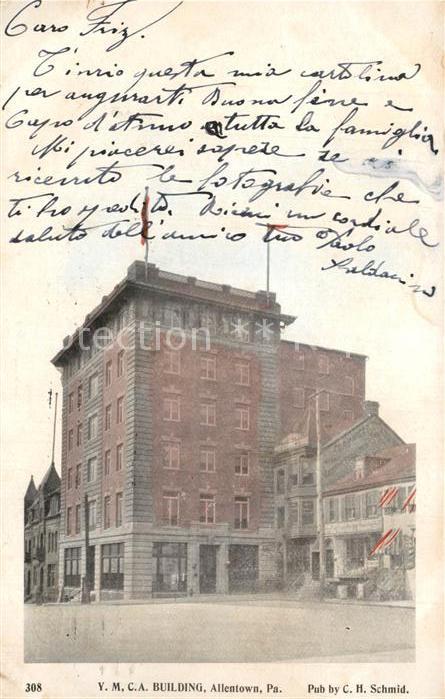 Caro Friz.
T'invio questa mia cartolina
per augurarti Buona fine e
Capo d'anno a tutta la famiglia
Mi piacerei sapere se ai
ricevuto le fotografie che
ti ho spedito. Ricevi un cordiale
saluto dell'amico tuo Paolo
308 Y. M. C. A. BUILDING, Allentown, Pa. Pub by C. H. Schmid.